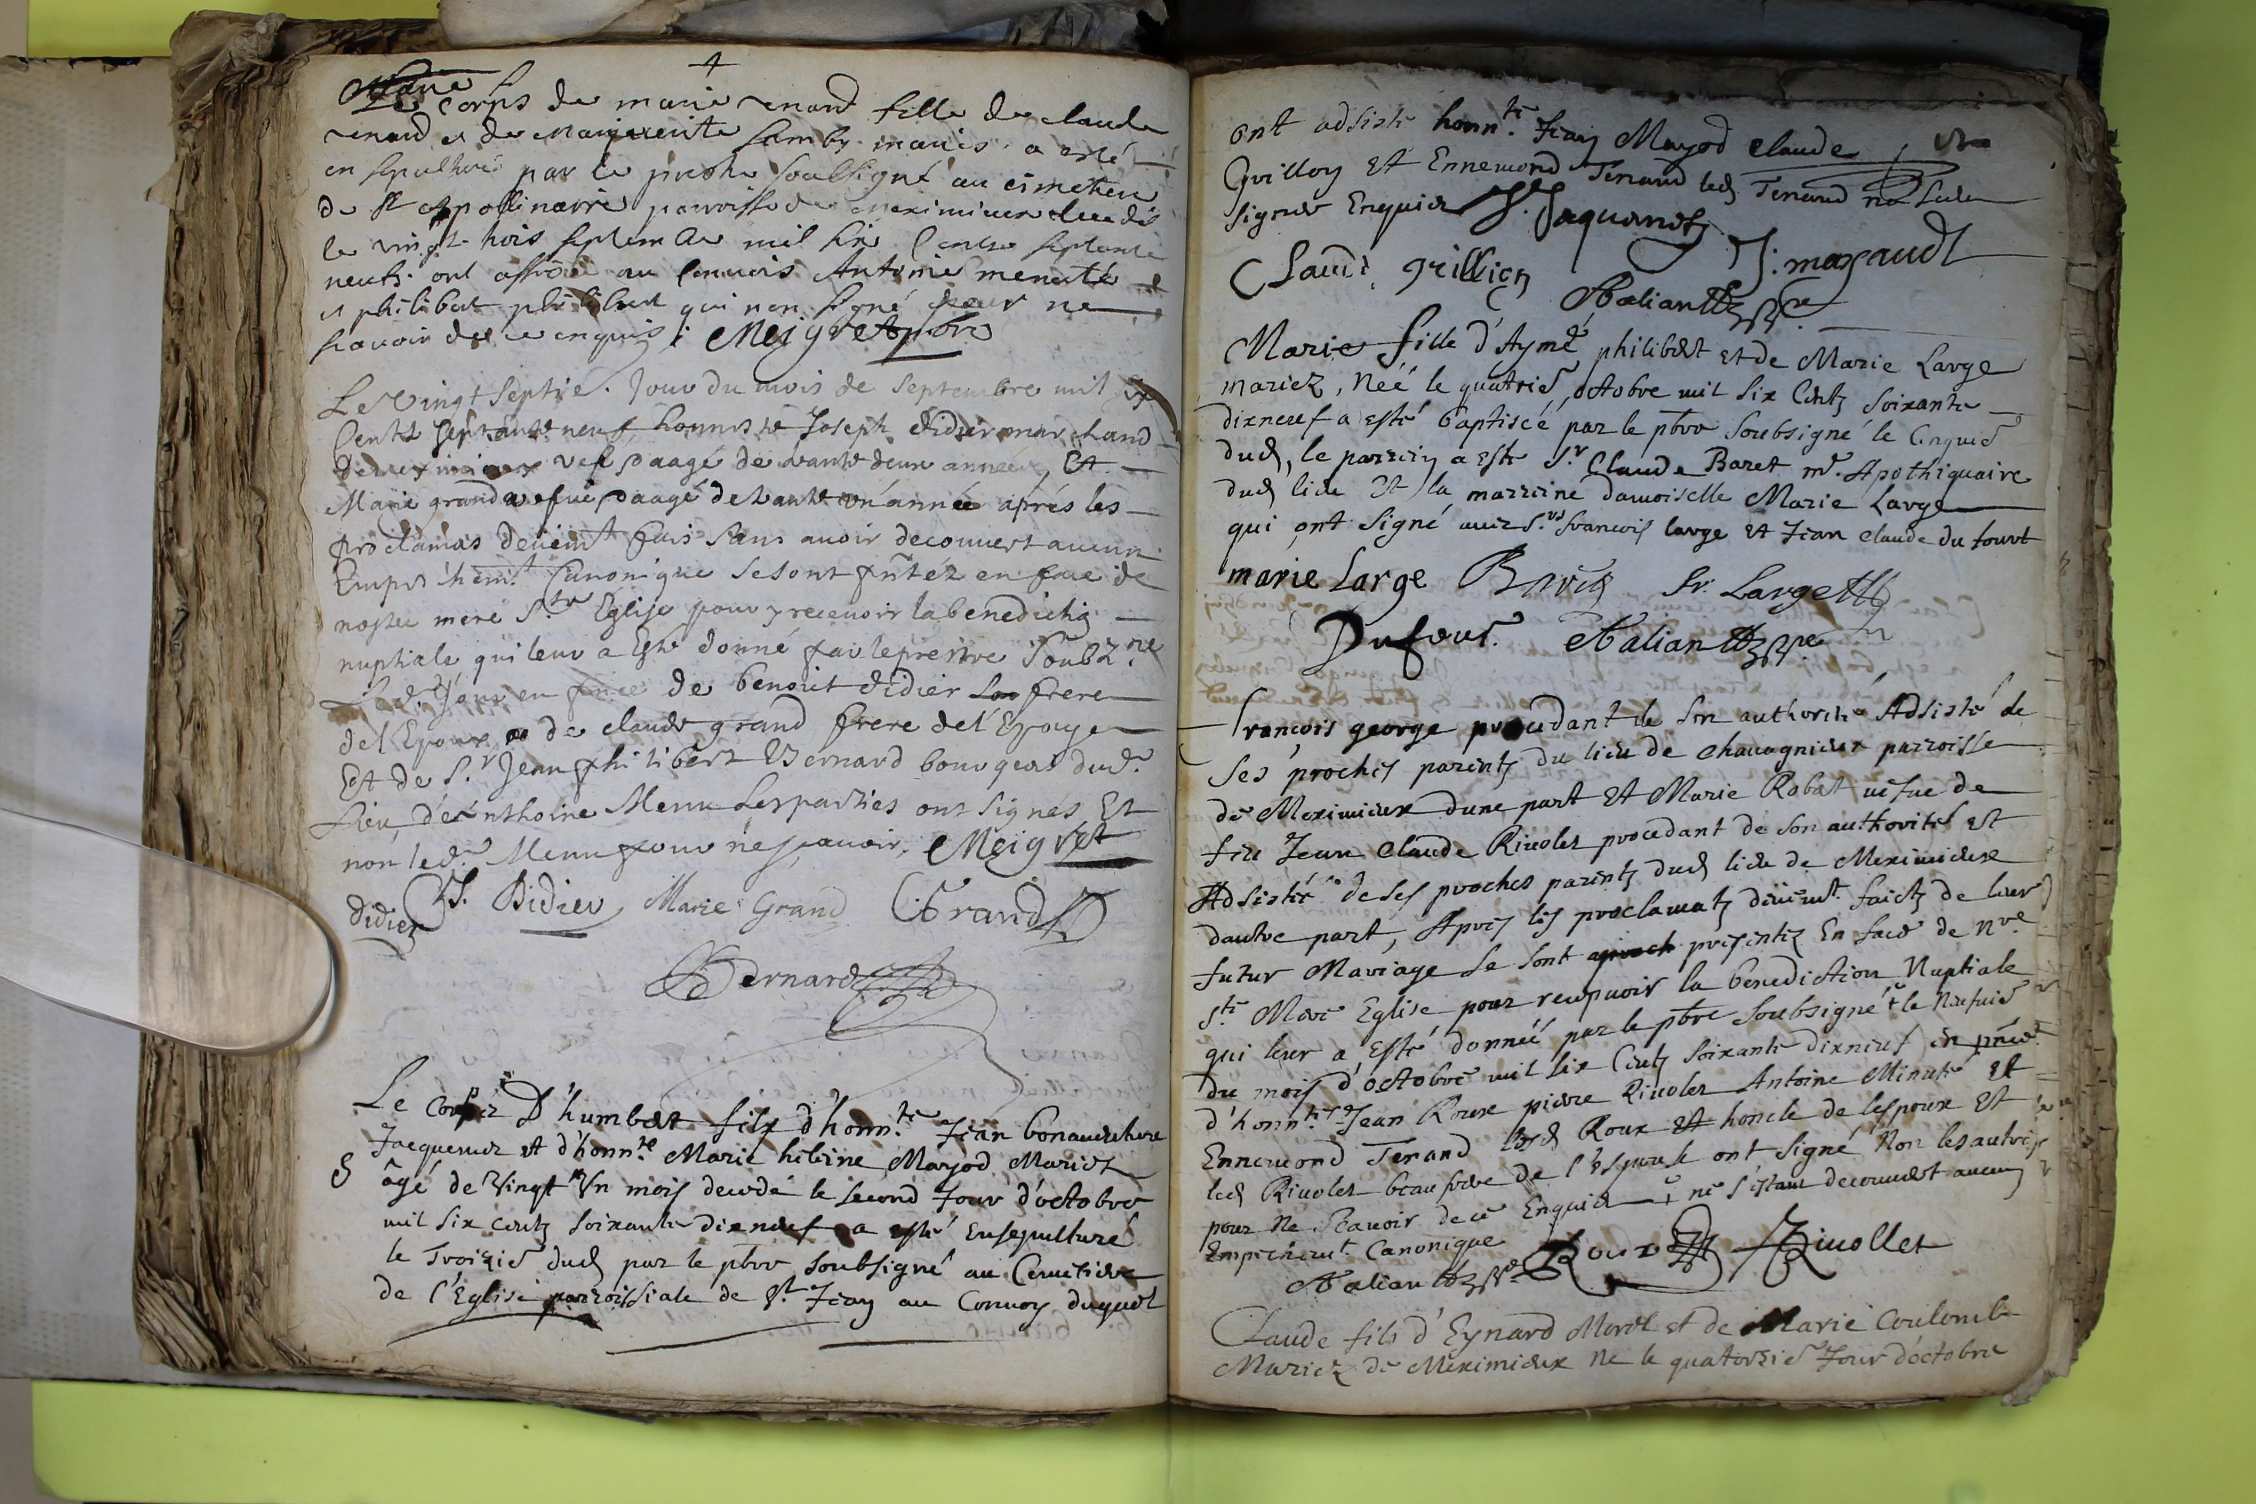 Le Corps de marie renard fille de claude
renard et de marguerite mariés a esté
en sepulturé par le prestre soussigné au cimetiere
de St Appollinairre parroisse de meximieux
le vingt trois septembre mil six Cents septante
neufs. ont assisté au Convois Antoine menute
et philibert philibert qui non signé pour ne
scavoir de ce enquis. Meigret pbre
Le vingt septie. Jour du mois de Septembre mil six
Cents septante neuf, honneste Joseph didier marchand
vef aagé de deux années, Et
Marie grand vefue aagé de année après les
proclamas deüem.t fais sans avoir decouvert aucun
Empeschem.t Canonique se sont pntéz en face de
nostre mere S.te Eglise pour y recevoir la benediction
nuptiale qui leur a Esté donné par le prestre Soubz.né
Led. Jour en face de benoit didier son frere
del Epoux et de claude grand frere del'Epouse
Et de S.r Jean philibert Bernard bourgeois dud.
Lieu, d'énthoine Menu Lesparties ont signés Et
non led. Menu pour ne sçavoir. Meigret
didier J. Didier Marie Grand C. Grand
Bernard
Le Corps D'humbert fils d'honn.te Jean bonaventure
Jacquemet et d'honn.te Marie hélaine Mayod Mariez
âgé de Vingt Un mois decedé le second Jour d'octobre
mil six centz soixante dixneuf a esté Ensepulturé
le Troizie dud par le pbre soubsigné au Cemetiere
de l'Eglise parroissiale de St Jean au Convoy duquel
ont adsisté honn.te Jean Mayod Claude
Grilloy Et Ennemond Terrand led Terrand
signer Enquis J. Jaquemet
Claude grillien J. mayaudt
Marie fille d'Aymé philibert et de Marie Large
mariez, Née le quatrie octobre mil six Centz soixante
dixneuf a esté baptisée par le pbre soubsigné le Cinquie
dud, le parrein a este S.r Claude Baret m.e Apothiquaire
dud lieu et la marreine damoiselle Marie Large
qui ont signé avec S.rs francois large et Jean Claude du fourt
marie Large Baret fr. Large
Dufour.
francois george procedant de son authorité Adsisté de
ses proches parents du lieu de Chavagnieux parroisse
de Meximieux dune part et Marie Robat vefue de
feu Jean Claude Rivolet procedant de son authorité et
Adsistée de ses proches parentz dud lieu de Meximieux
dautre part, Apres les proclamatz deüemt. faictz de leur
futur Mariage se sont presentez En face de Nre.
Ste Mere Eglise pour recepvoir la benediction Nuptiale
qui leur a esté donnée par le pbre soubsigné le Neufvie
du mois d'octobre mil six Centz soixante dixneuf En pnce.
d'honn.tes Jean Roux pierre Rivolet Antoine Minute et
Ennemond Terand led Roux et honcle de lespoux Et
led Rivolet beaufrere de l'Espouse ont signé Non les autres
pour ne scavoir de ce Enquis ne s'estant decouvert aucun
Empechemt. Canonique
Roux Rivollet
Claude fils d'Eynard Morel et de Marie Coulomb
Mariez de Meximieux Ne le quatorzie Jour d'octobre